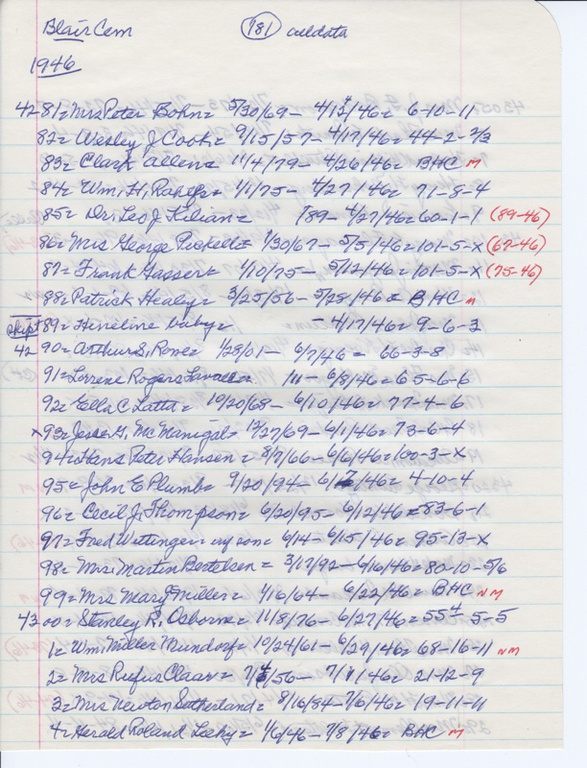 Blair Cem (181) acldata
1946
42 81= Mrs Peter Bohn= 5/30/69 - 4/12/46= 6-10-11
82= Wesley J Cook= 9/15/57 - 4/17/46= 44-2-2/3
83= Clark Allen= 11/4/79 - 4/26/46= BHC M
84= Wm. H. 1/1/75 - 4/27/46= 71-8-4
85= Dr. Leo J. Kilian= /89 - 4/27/46= 60-1-1 (89-46)
86= Mrs George Pickett= 1/30/67 - 5/5/46= 101-5-X (67-46)
87= Frank Gasser= 1/10/75 - 5/12/46= 101-5-X (75-46)
88= Patrick Healy= 3/25/56 - 5/28/46= BHC M
skip 89= Hineline baby= - 4/17/46= 9-6-3
42 90= Arthur S. Rone= 1/28/01 - 6/7/46= 66-3-8
91= Lorene Rogers /11 - 6/8/46= 65-6-6
92= Ella C Latta= 10/20/68 - 6/10/46= 77-4-6
x 93= Jesse G. McManigal= 12/27/69 - 6/1/46= 73-6-4
94= Hans Peter Hansen= 8/7/66 - 6/6/46= 100-3-X
95= John E Plumb= 9/20/94 - 6/7/46= 4-10-4
96= Cecil J. Thompson= 6/20/95 - 6/12/46= 83-6-1
97= Fred Wittinger 6/14 - 6/15/46= 95-13-X
98= Mrs. Martin Bertelsen= 3/17/92 - 6/16/46= 80-10-5/6
99= Mrs Mary Miller= 1/16/64 - 6/22/46= BHC NM
43 00= Stanley R. Osborn= 11/8/76 - 6/27/46= 55-5-5
1= Wm. Miller Mundorf= 10/24/61 - 6/29/46= 68-16-11 NM
2= Mrs Rufus Claar= 7/4/56 - 7/1/46= 21-12-9
3= Mrs Newton Sutherland= 8/16/84 - 7/6/46= 19-11-11
4= Harold Roland 1/6/46 - 7/8/46= BHC M